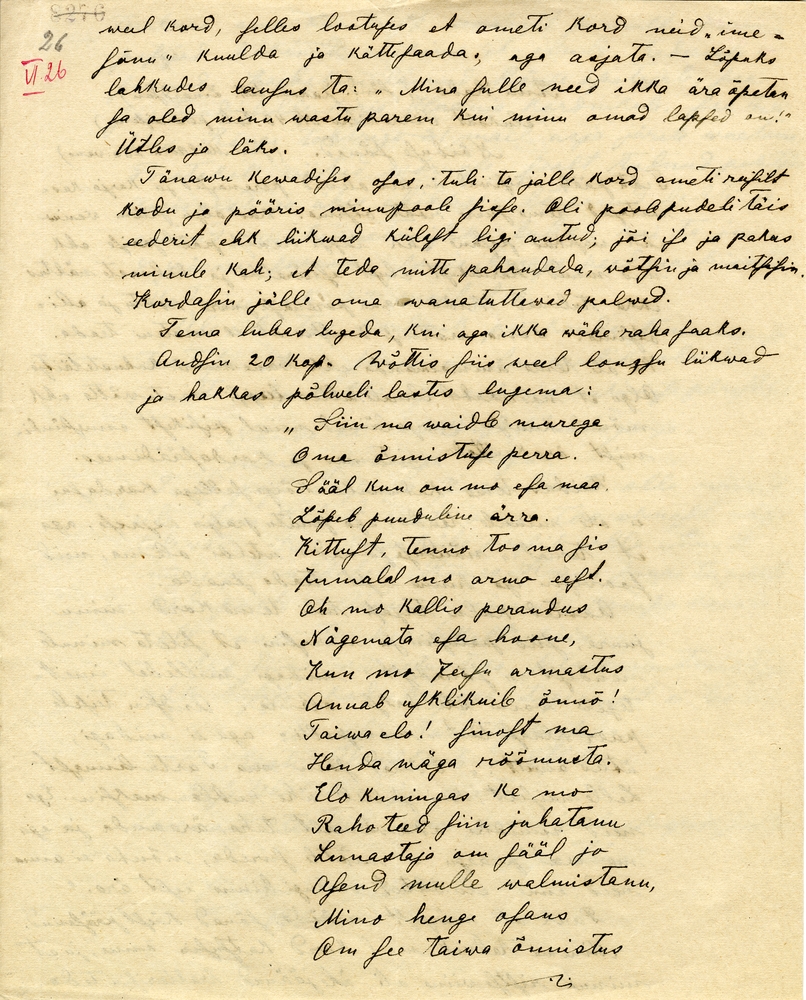 3276
26
VI 26
weel kord, selles lootuses et ometi kord neid „ime-
sõnu“ kuulda ja kättesaada; aga asjata. — Lõpuks
lahkudes lausus ta: „Mina sulle need ikka äraõpetan
sa oled minu wastu parem kui minu omad lapsed on!“
Ütles ja läks.
Tänawu kewadises osas, tuli ta jälle kord ameti reisilt
kodu ja pööris minupoole sisse. Oli poolepudeli täis
eederit ehk liikwad külast ligi antud; jõi ise ja pakus
minule kah; et teda mitte pahandada, wõtsin ja maitsesin.
Kordasin jälle oma wanatuttawad palwed.
Tema lubas lugeda, kui aga ikka wähe raha saaks.
Andsin 20 kop. Wõttis siis weel lonksu liikwad
ja hakkas põlweli lastes lugema:
„Siin ma waidle murega
Oma õnnistuse perra.
Sääl kun om mo esa maa
Lõpeb puuduline ärra.
Kittust, tenno too ma sis
Jumalal mo armo eest.
Oh mo kallis perandus
Nägemata esa hoone,
Kun mo Jesu armastus
Annab usklikuile õnnõ!
Taiwa elo! sinost ma
Henda wäga rõõmusta.
Elo kuningas ke mo
Raho teed siin juhatanu
Lunastaja om sääl jo
Asend mulle walmistanu,
Mino henge osaus
Om see taiwa õnnistus